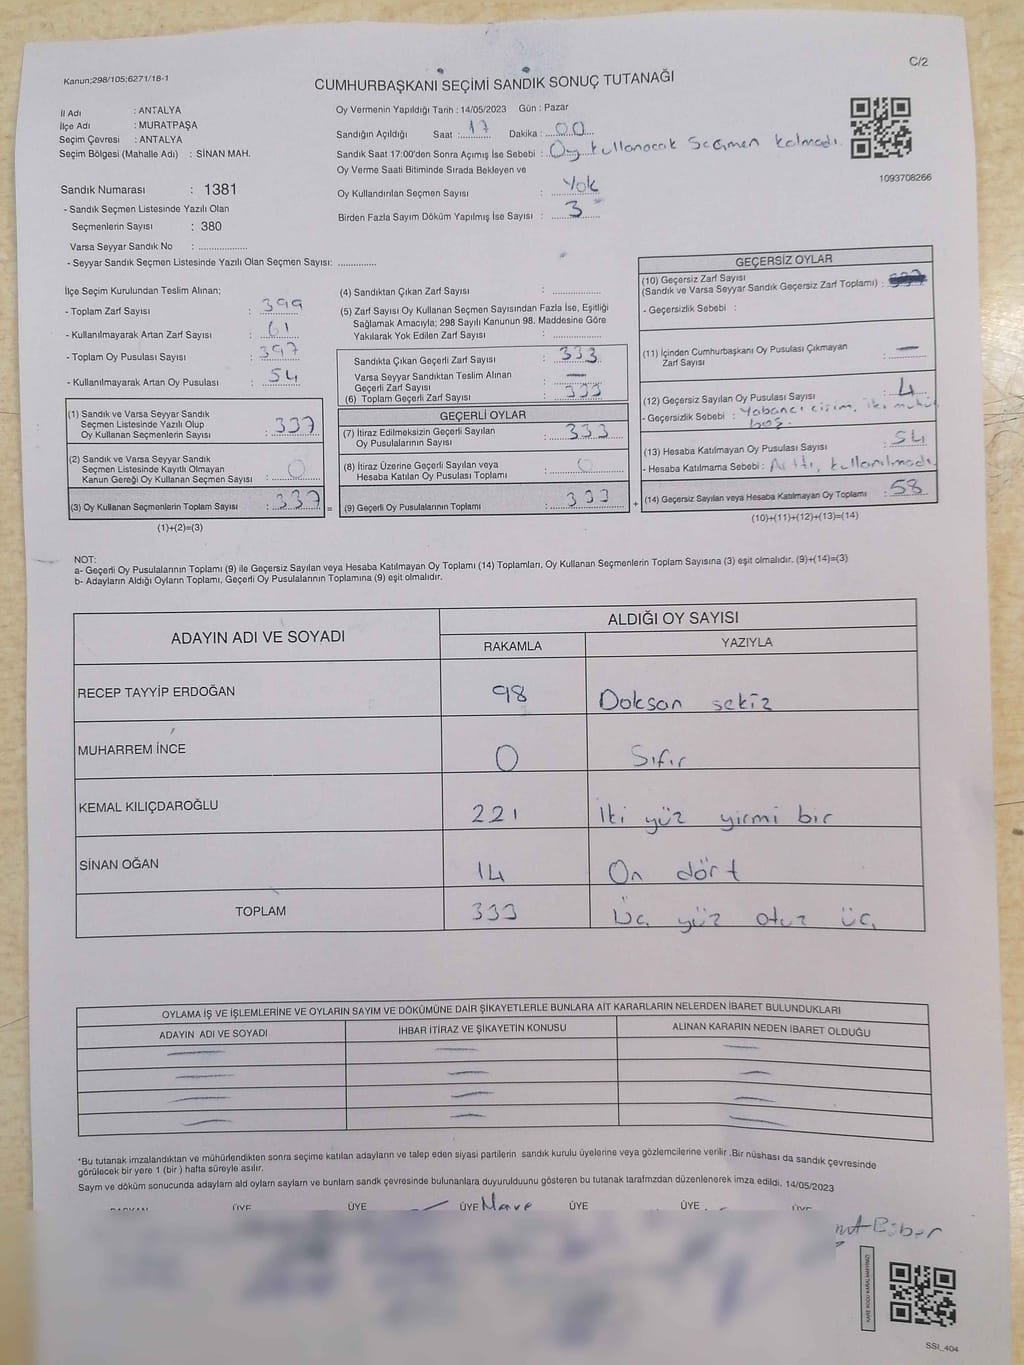 C/2
Kanun;298/105;6271/18-1
CUMHURBAŞKANI SEÇİMİ SANDIK SONUÇ TUTANAĞI
İl Adı : ANTALYA
İlçe Adı : MURATPAŞA
Seçim Çevresi : ANTALYA
Seçim Bölgesi (Mahalle Adı) : SİNAN MAH.
Sandık Numarası : 1381
- Sandık Seçmen Listesinde Yazılı Olan
Seçmenlerin Sayısı : 380
Varsa Seyyar Sandık No : ..................
- Seyyar Sandık Seçmen Listesinde Yazılı Olan Seçmen Sayısı: ..............
Oy Vermenin Yapıldığı Tarih : 14/05/2023 Gün : Pazar
Sandığın Açıldığı Saat : 17 Dakika : 00
Sandık Saat 17:00'den Sonra Açımış İse Sebebi : Oy kullanacak Seçmen kalmadı.
Oy Verme Saati Bitiminde Sırada Bekleyen ve
Oy Kullandırılan Seçmen Sayısı : Yok
Birden Fazla Sayım Döküm Yapılmış İse Sayısı : 3
1093708266
İlçe Seçim Kurulundan Teslim Alınan;
- Toplam Zarf Sayısı : 399
- Kullanılmayarak Artan Zarf Sayısı : 61
- Toplam Oy Pusulası Sayısı : 397
- Kullanılmayarak Artan Oy Pusulası : 54
(1) Sandık ve Varsa Seyyar Sandık
Seçmen Listesinde Yazılı Olup
Oy Kullanan Seçmenlerin Sayısı : 337
(2) Sandık ve Varsa Seyyar Sandık
Seçmen Listesinde Kayıtlı Olmayan
Kanun Gereği Oy Kullanan Seçmen Sayısı : 0
(3) Oy Kullanan Seçmenlerin Toplam Sayısı : 337 =
(1)+(2)=(3)
(4) Sandıktan Çıkan Zarf Sayısı : ..................
(5) Zarf Sayısı Oy Kullanan Seçmen Sayısından Fazla İse, Eşitliği
Sağlamak Amacıyla; 298 Sayılı Kanunun 98. Maddesine Göre
Yakılarak Yok Edilen Zarf Sayısı : ..................
Sandıkta Çıkan Geçerli Zarf Sayısı : 333
Varsa Seyyar Sandıktan Teslim Alınan
Geçerli Zarf Sayısı : —
(6) Toplam Geçerli Zarf Sayısı : 333
GEÇERLİ OYLAR
(7) İtiraz Edilmeksizin Geçerli Sayılan
Oy Pusulalarının Sayısı : 333
(8) İtiraz Üzerine Geçerli Sayılan veya
Hesaba Katılan Oy Pusulası Toplamı : 0
(9) Geçerli Oy Pusulalarının Toplamı : 333 +
GEÇERSİZ OYLAR
(10) Geçersiz Zarf Sayısı
(Sandık ve Varsa Seyyar Sandık Geçersiz Zarf Toplamı) :
- Geçersizlik Sebebi :
(11) İçinden Cumhurbaşkanı Oy Pusulası Çıkmayan
Zarf Sayısı : —
(12) Geçersiz Sayılan Oy Pusulası Sayısı : 4
- Geçersizlik Sebebi : Yabancı cisim, iki mühür
boş.
(13) Hesaba Katılmayan Oy Pusulası Sayısı : 54
- Hesaba Katılmama Sebebi : Arttı, kullanılmadı.
(14) Geçersiz Sayılan veya Hesaba Katılmayan Oy Toplamı : 58
(10)+(11)+(12)+(13)=(14)
NOT:
a- Geçerli Oy Pusulalarının Toplamı (9) ile Geçersiz Sayılan veya Hesaba Katılmayan Oy Toplamı (14) Toplamları, Oy Kullanan Seçmenlerin Toplam Sayısına (3) eşit olmalıdır. (9)+(14)=(3)
b- Adayların Aldığı Oyların Toplamı, Geçerli Oy Pusulalarının Toplamına (9) eşit olmalıdır.
ADAYIN ADI VE SOYADI ALDIĞI OY SAYISI
RAKAMLA YAZIYLA
RECEP TAYYİP ERDOĞAN 98 Doksan sekiz
MUHARREM İNCE 0 Sıfır
KEMAL KILIÇDAROĞLU 221 İki yüz yirmi bir
SİNAN OĞAN 14 On dört
TOPLAM 333 Üç yüz otuz üç
OYLAMA İŞ VE İŞLEMLERİNE VE OYLARIN SAYIM VE DÖKÜMÜNE DAİR ŞİKAYETLERLE BUNLARA AİT KARARLARIN NELERDEN İBARET BULUNDUKLARI
ADAYIN ADI VE SOYADI İHBAR İTİRAZ VE ŞİKAYETİN KONUSU ALINAN KARARIN NEDEN İBARET OLDUĞU
*Bu tutanak imzalandıktan ve mühürlendikten sonra seçime katılan adayların ve talep eden siyasi partilerin sandık kurulu üyelerine veya gözlemcilerine verilir .Bir nüshası da sandık çevresinde
görülecek bir yere 1 (bir ) hafta süreyle asılır.
Sayım ve döküm sonucunda adayların ald oyların sayları ve bunların sandk çevresinde bulunanlara duyurulduunu gösteren bu tutanak tarafmzdan düzenlenerek imza edildi. 14/05/2023
BAŞKAN ÜYE ÜYE ÜYE Merve ÜYE ÜYE ÜYE
KARE KODU KARALAMAYINIZ!
SSI_404